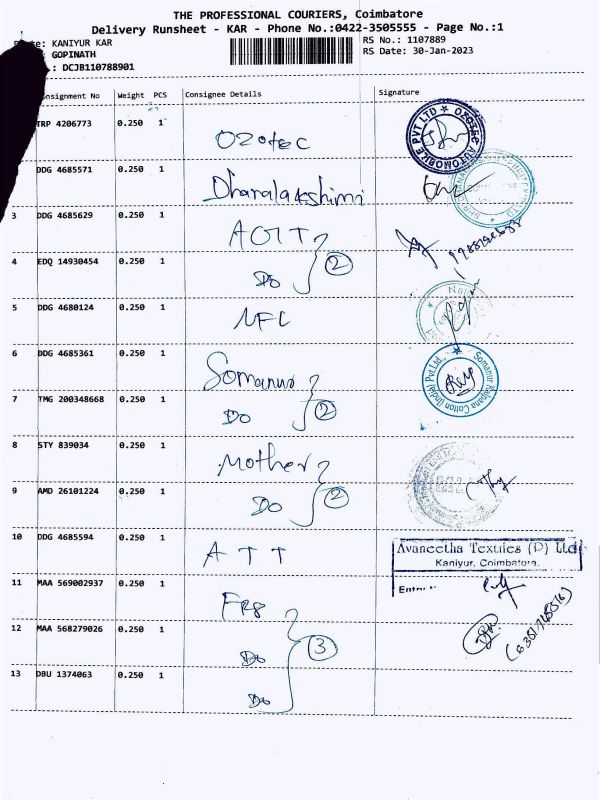 THE PROFESSIONAL COURIERS, Coimbatore
Delivery Runsheet - KAR - Phone No.:0422-3505555 - Page No.:1
KANIYUR KAR
RS No.: 1107889
GOPINATH
RS Date: 30-Jan-2023
.: DCJB110788901
Consignment No Weight PCS Consignee Details Signature
TRP 4206773 0.250 1 Ozotec
OZOTEC AUTOMOBILE PVT LTD
DDG 4685571 0.250 1 Dhanalakshimi
3 DDG 4685629 0.250 1 AOTT
4 EDQ 14930454 0.250 1 Do 2
5 DDG 4680124 0.250 1 NFC
6 DDG 4685361 0.250 1 Somanur
Somanur Kalpana Cotton (India) Pvt.Ltd.,
7 TMG 200348668 0.250 1 Do 2
8 STY 839034 0.250 1 Mother
9 AMD 26101224 0.250 1 Do 2
10 DDG 4685594 0.250 1 ATT
Avaneetha Textiles (P) Ltd
Kaniyur, Coimbatore.
11 MAA 569002937 0.250 1
12 MAA 568279026 0.250 1 Do 3
13 DBU 1374063 0.250 1 Do